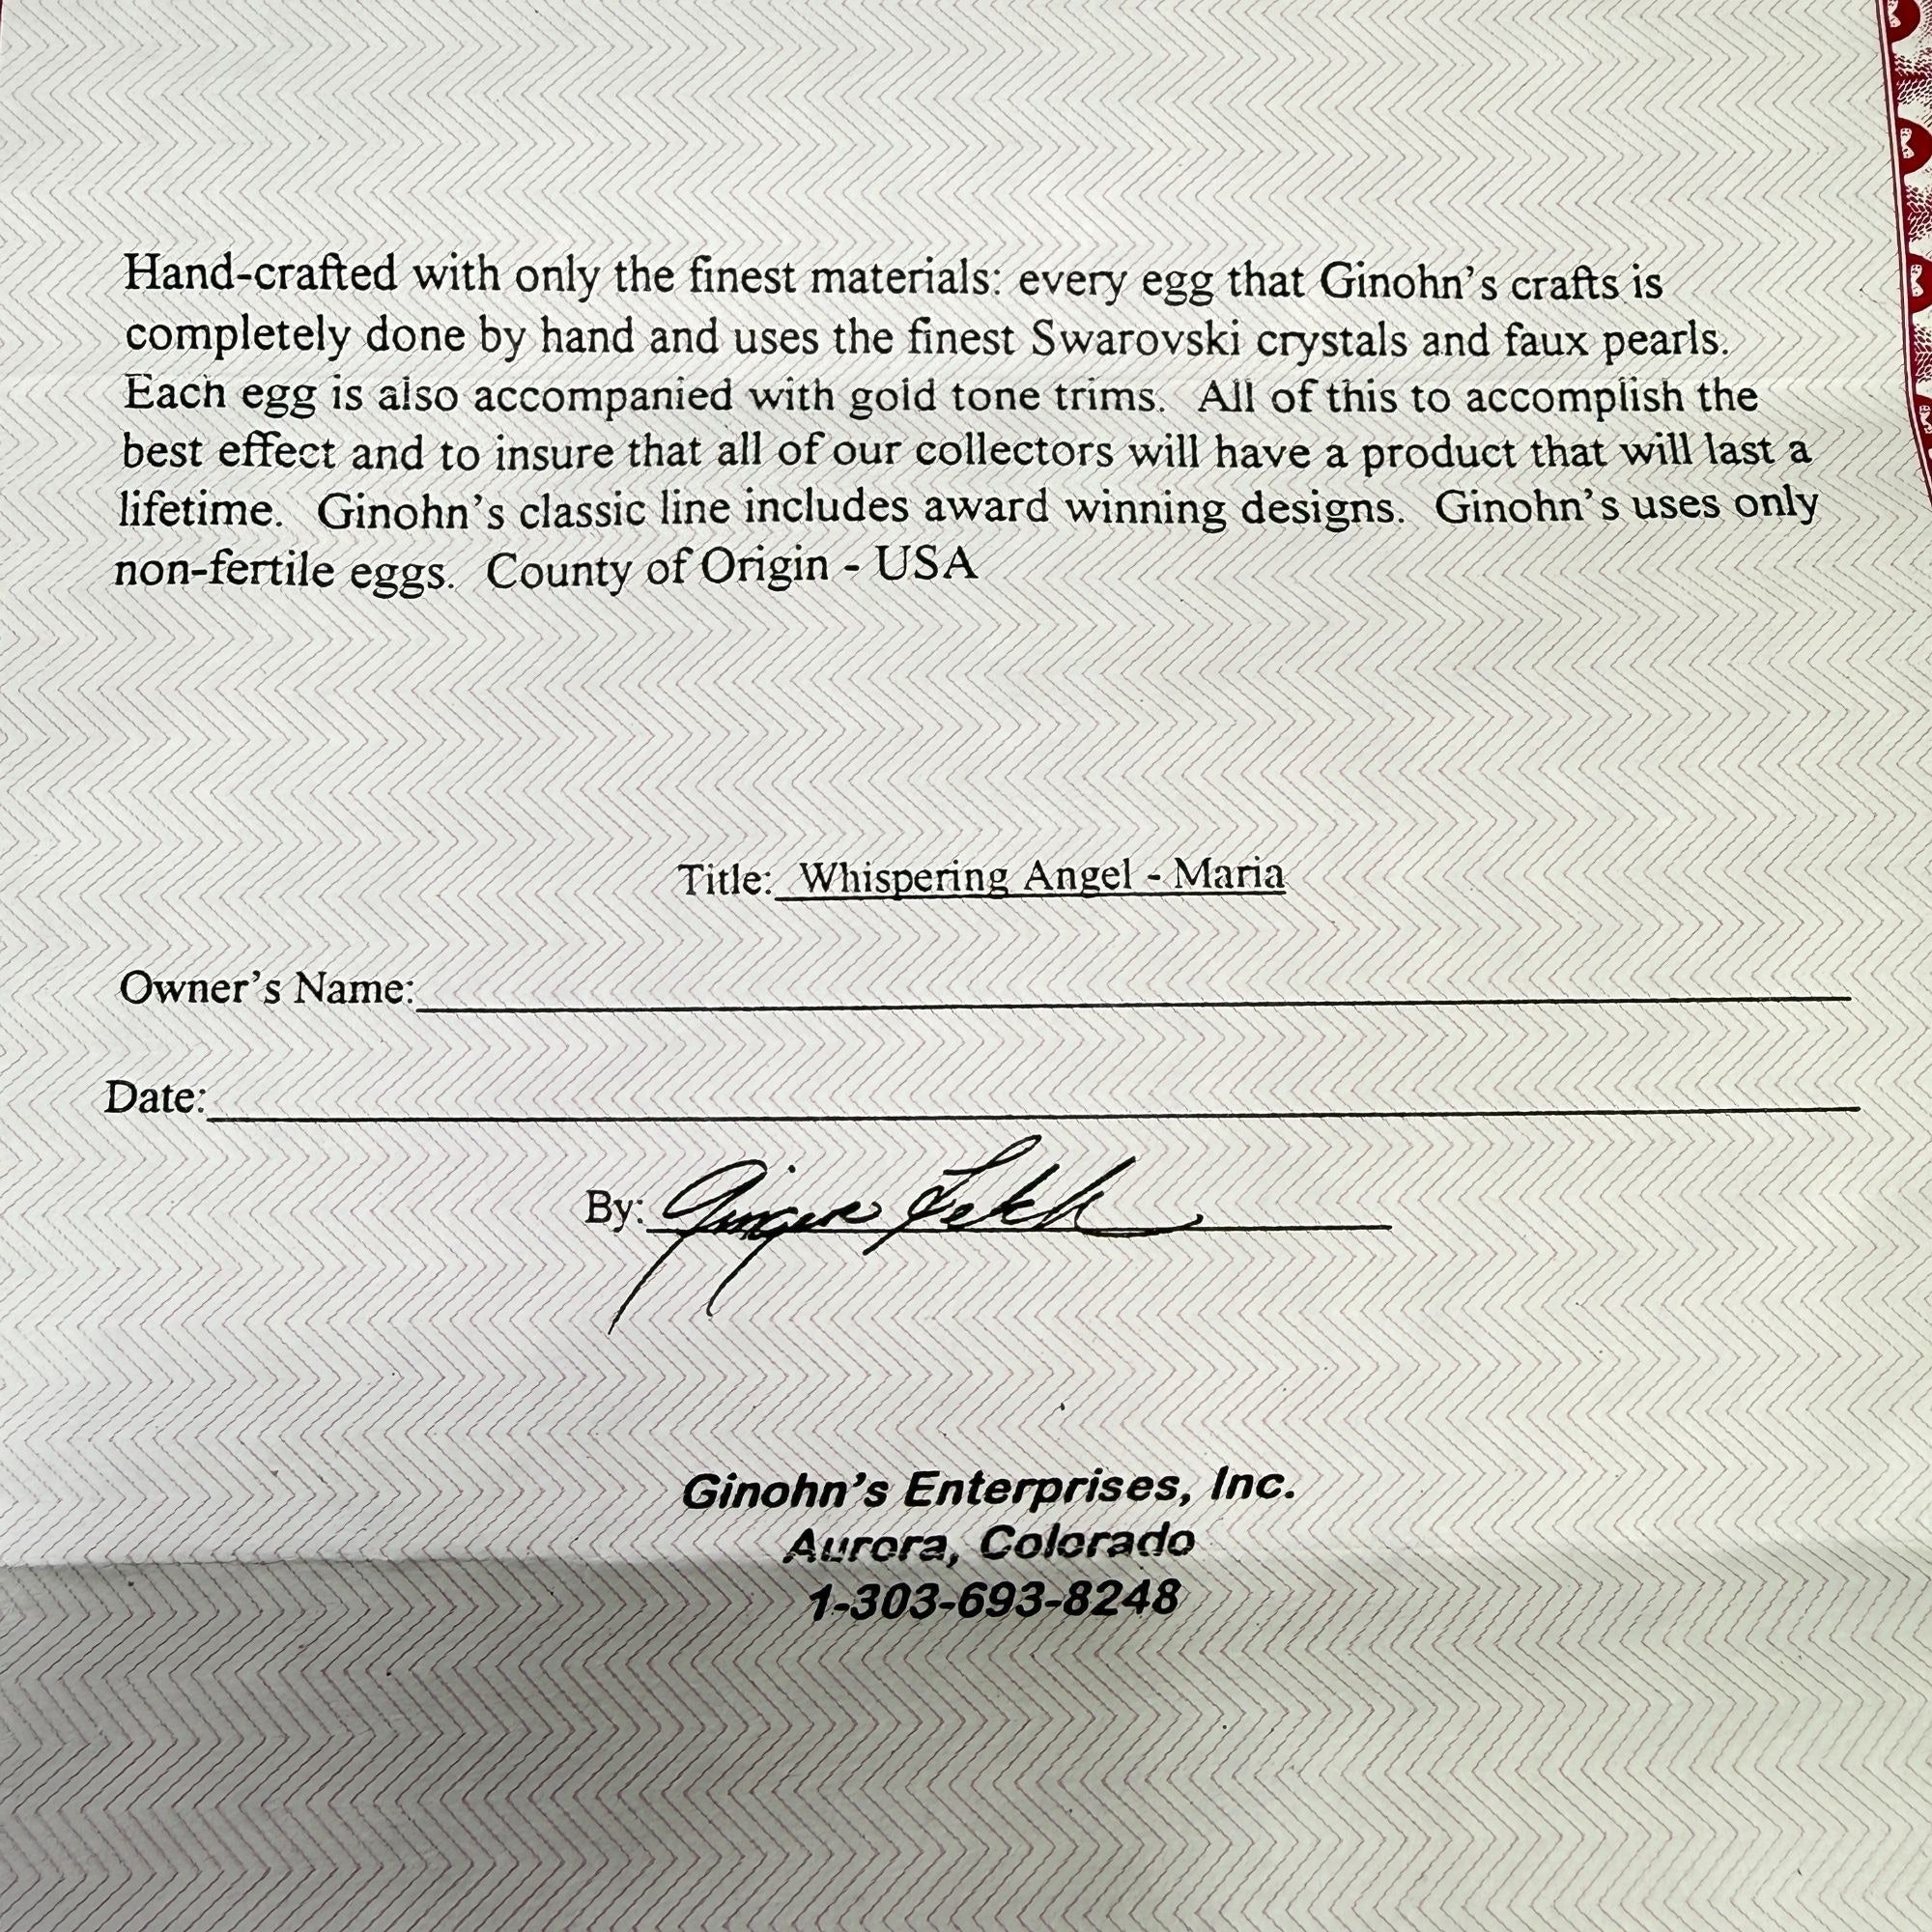 Hand-crafted with only the finest materials: every egg that Ginohn's crafts is
completely done by hand and uses the finest Swarovski crystals and faux pearls.
Each egg is also accompanied with gold tone trims. All of this to accomplish the
best effect and to insure that all of our collectors will have a product that will last a
lifetime. Ginohn's classic line includes award winning designs. Ginohn's uses only
non-fertile eggs. County of Origin - USA
Title: Whispering Angel - Maria
Owner's Name:
Date:
By:
Ginohn's Enterprises, Inc.
Aurora, Colorado
1-303-693-8248